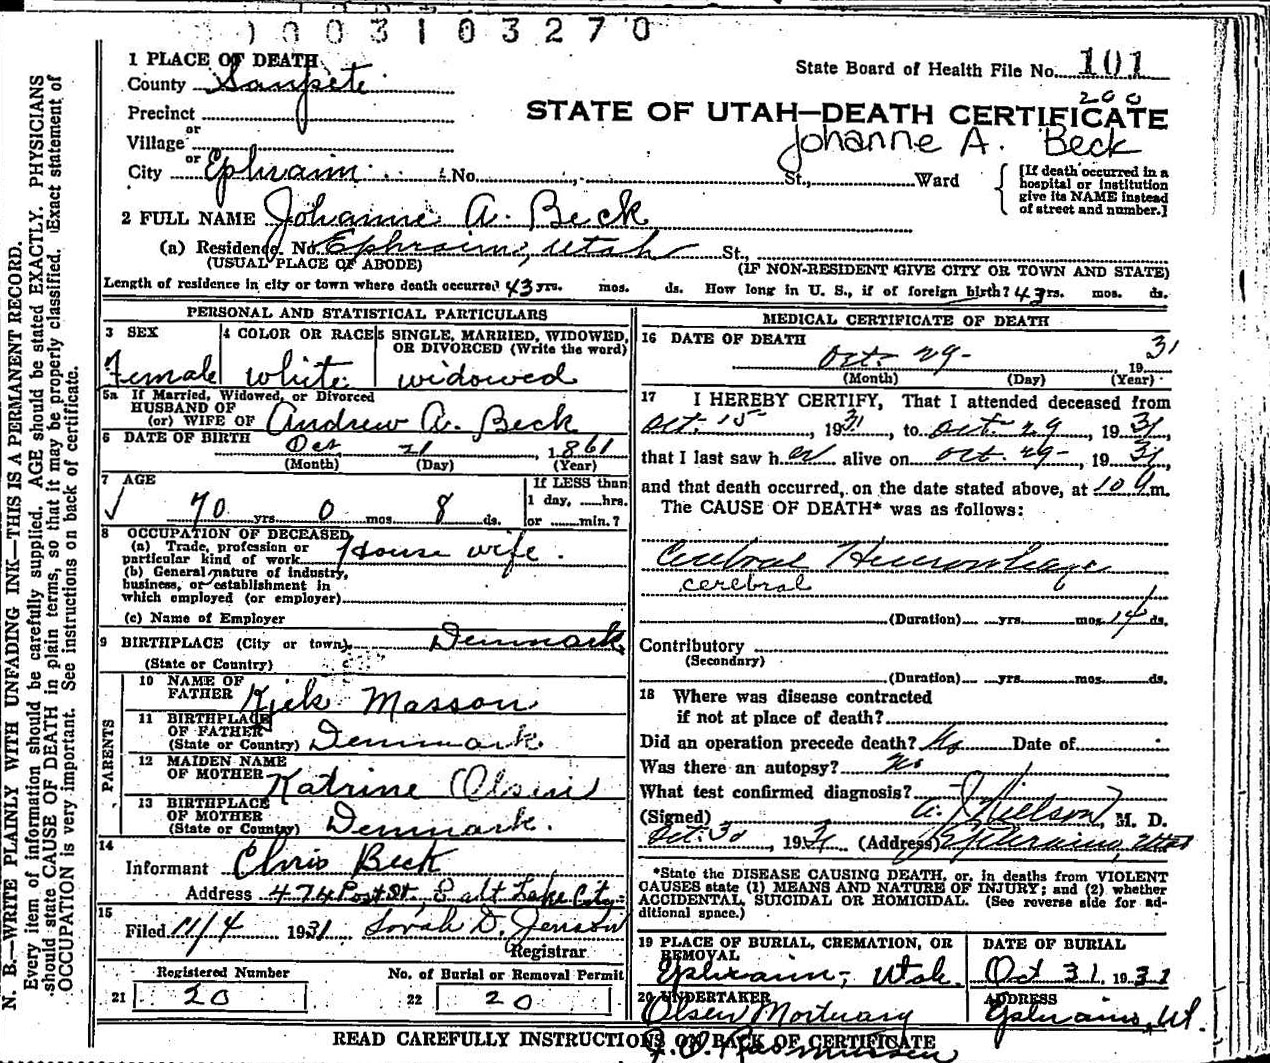 1003103270
1 PLACE OF DEATH
State Board of Health File No. 101
County Sanpete
200
Precinct
STATE OF UTAH—DEATH CERTIFICATE
or
Village
Johanne A. Beck
or
City Ephraim No. St., Ward
[If death occurred in a hospital or institution give its NAME instead of street and number.]
2 FULL NAME Johanne A. Beck
(a) Residence. No. Ephraim, Utah St.,
(USUAL PLACE OF ABODE) (IF NON-RESIDENT GIVE CITY OR TOWN AND STATE)
Length of residence in city or town where death occurred 43 yrs. mos. ds. How long in U. S., if of foreign birth? 43 yrs. mos. ds.
PERSONAL AND STATISTICAL PARTICULARS
3 SEX 4 COLOR OR RACE 5 SINGLE, MARRIED, WIDOWED,
OR DIVORCED (Write the word)
Female white widowed
5a If Married, Widowed, or Divorced
HUSBAND OF
(or) WIFE OF Andrew A. Beck
6 DATE OF BIRTH Oct 21, 1861
(Month) (Day) (Year)
7 AGE If LESS than
1 day, hrs.
70 yrs. 0 mos. 8 ds. or min.?
8 OCCUPATION OF DECEASED
(a) Trade, profession or
particular kind of work House wife.
(b) General nature of industry,
business, or establishment in
which employed (or employer)
(c) Name of Employer
9 BIRTHPLACE (City or town) Denmark
(State or Country)
PARENTS
10 NAME OF
FATHER Masson
11 BIRTHPLACE
OF FATHER
(State or Country) Denmark.
12 MAIDEN NAME
OF MOTHER Katrine Olsen
13 BIRTHPLACE
OF MOTHER
(State or Country) Denmark.
14
Informant Chris Beck
Address 474 Post St, Salt Lake City
15
Filed 11/4 1931 Sorah D. Jenson
Registrar
Registered Number No. of Burial or Removal Permit
21 20 22 20
MEDICAL CERTIFICATE OF DEATH
16 DATE OF DEATH
Oct. 29- 1931
(Month) (Day) (Year)
17 I HEREBY CERTIFY, That I attended deceased from
Oct. 15, 1931, to Oct. 29, 1931,
that I last saw her alive on Oct. 29-, 1931,
and that death occurred, on the date stated above, at 10 m.
The CAUSE OF DEATH* was as follows:
Cerebral Hemorrhage
cerebral
(Duration) yrs. mos. 14 ds.
Contributory
(Secondary)
(Duration) yrs. mos. ds.
18 Where was disease contracted
if not at place of death?
Did an operation precede death? No Date of
Was there an autopsy? No
What test confirmed diagnosis?
(Signed) Nielson, M. D.
Oct. 30, 1931 (Address) Ephraim, Utah
*State the DISEASE CAUSING DEATH, or, in deaths from VIOLENT
CAUSES state (1) MEANS AND NATURE OF INJURY; and (2) whether
ACCIDENTAL, SUICIDAL OR HOMICIDAL. (See reverse side for ad-
ditional space.)
19 PLACE OF BURIAL, CREMATION, OR
REMOVAL
Ephraim, Utah.
DATE OF BURIAL
Oct 31, 1931
20 UNDERTAKER
Olsen Mortuary
ADDRESS
Ephraim, Ut.
READ CAREFULLY INSTRUCTIONS ON BACK OF CERTIFICATE
Rasmussen
N. B.—WRITE PLAINLY WITH UNFADING INK—THIS IS A PERMANENT RECORD.
Every item of information should be carefully supplied. AGE should be stated EXACTLY. PHYSICIANS
should state CAUSE OF DEATH in plain terms, so that it may be properly classified. Exact statement of
OCCUPATION is very important. See instructions on back of certificate.